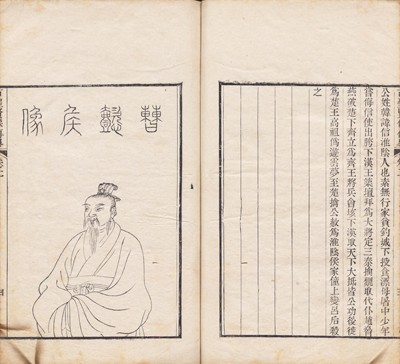 公姓韓諱信淮陰人也素無行家貧釣城下投食漂母居中少年
嘗侮信使出胯下漢王築壇拜爲大將定三秦擒魏取代仆趙脅
燕破楚下齊立爲齊王將兵會垓下漢取天下大抵皆公功後徙
爲楚王高祖僞遊雲夢至楚擒公赦爲淮陰侯家僮上變呂后殺
之
曹懿侯像